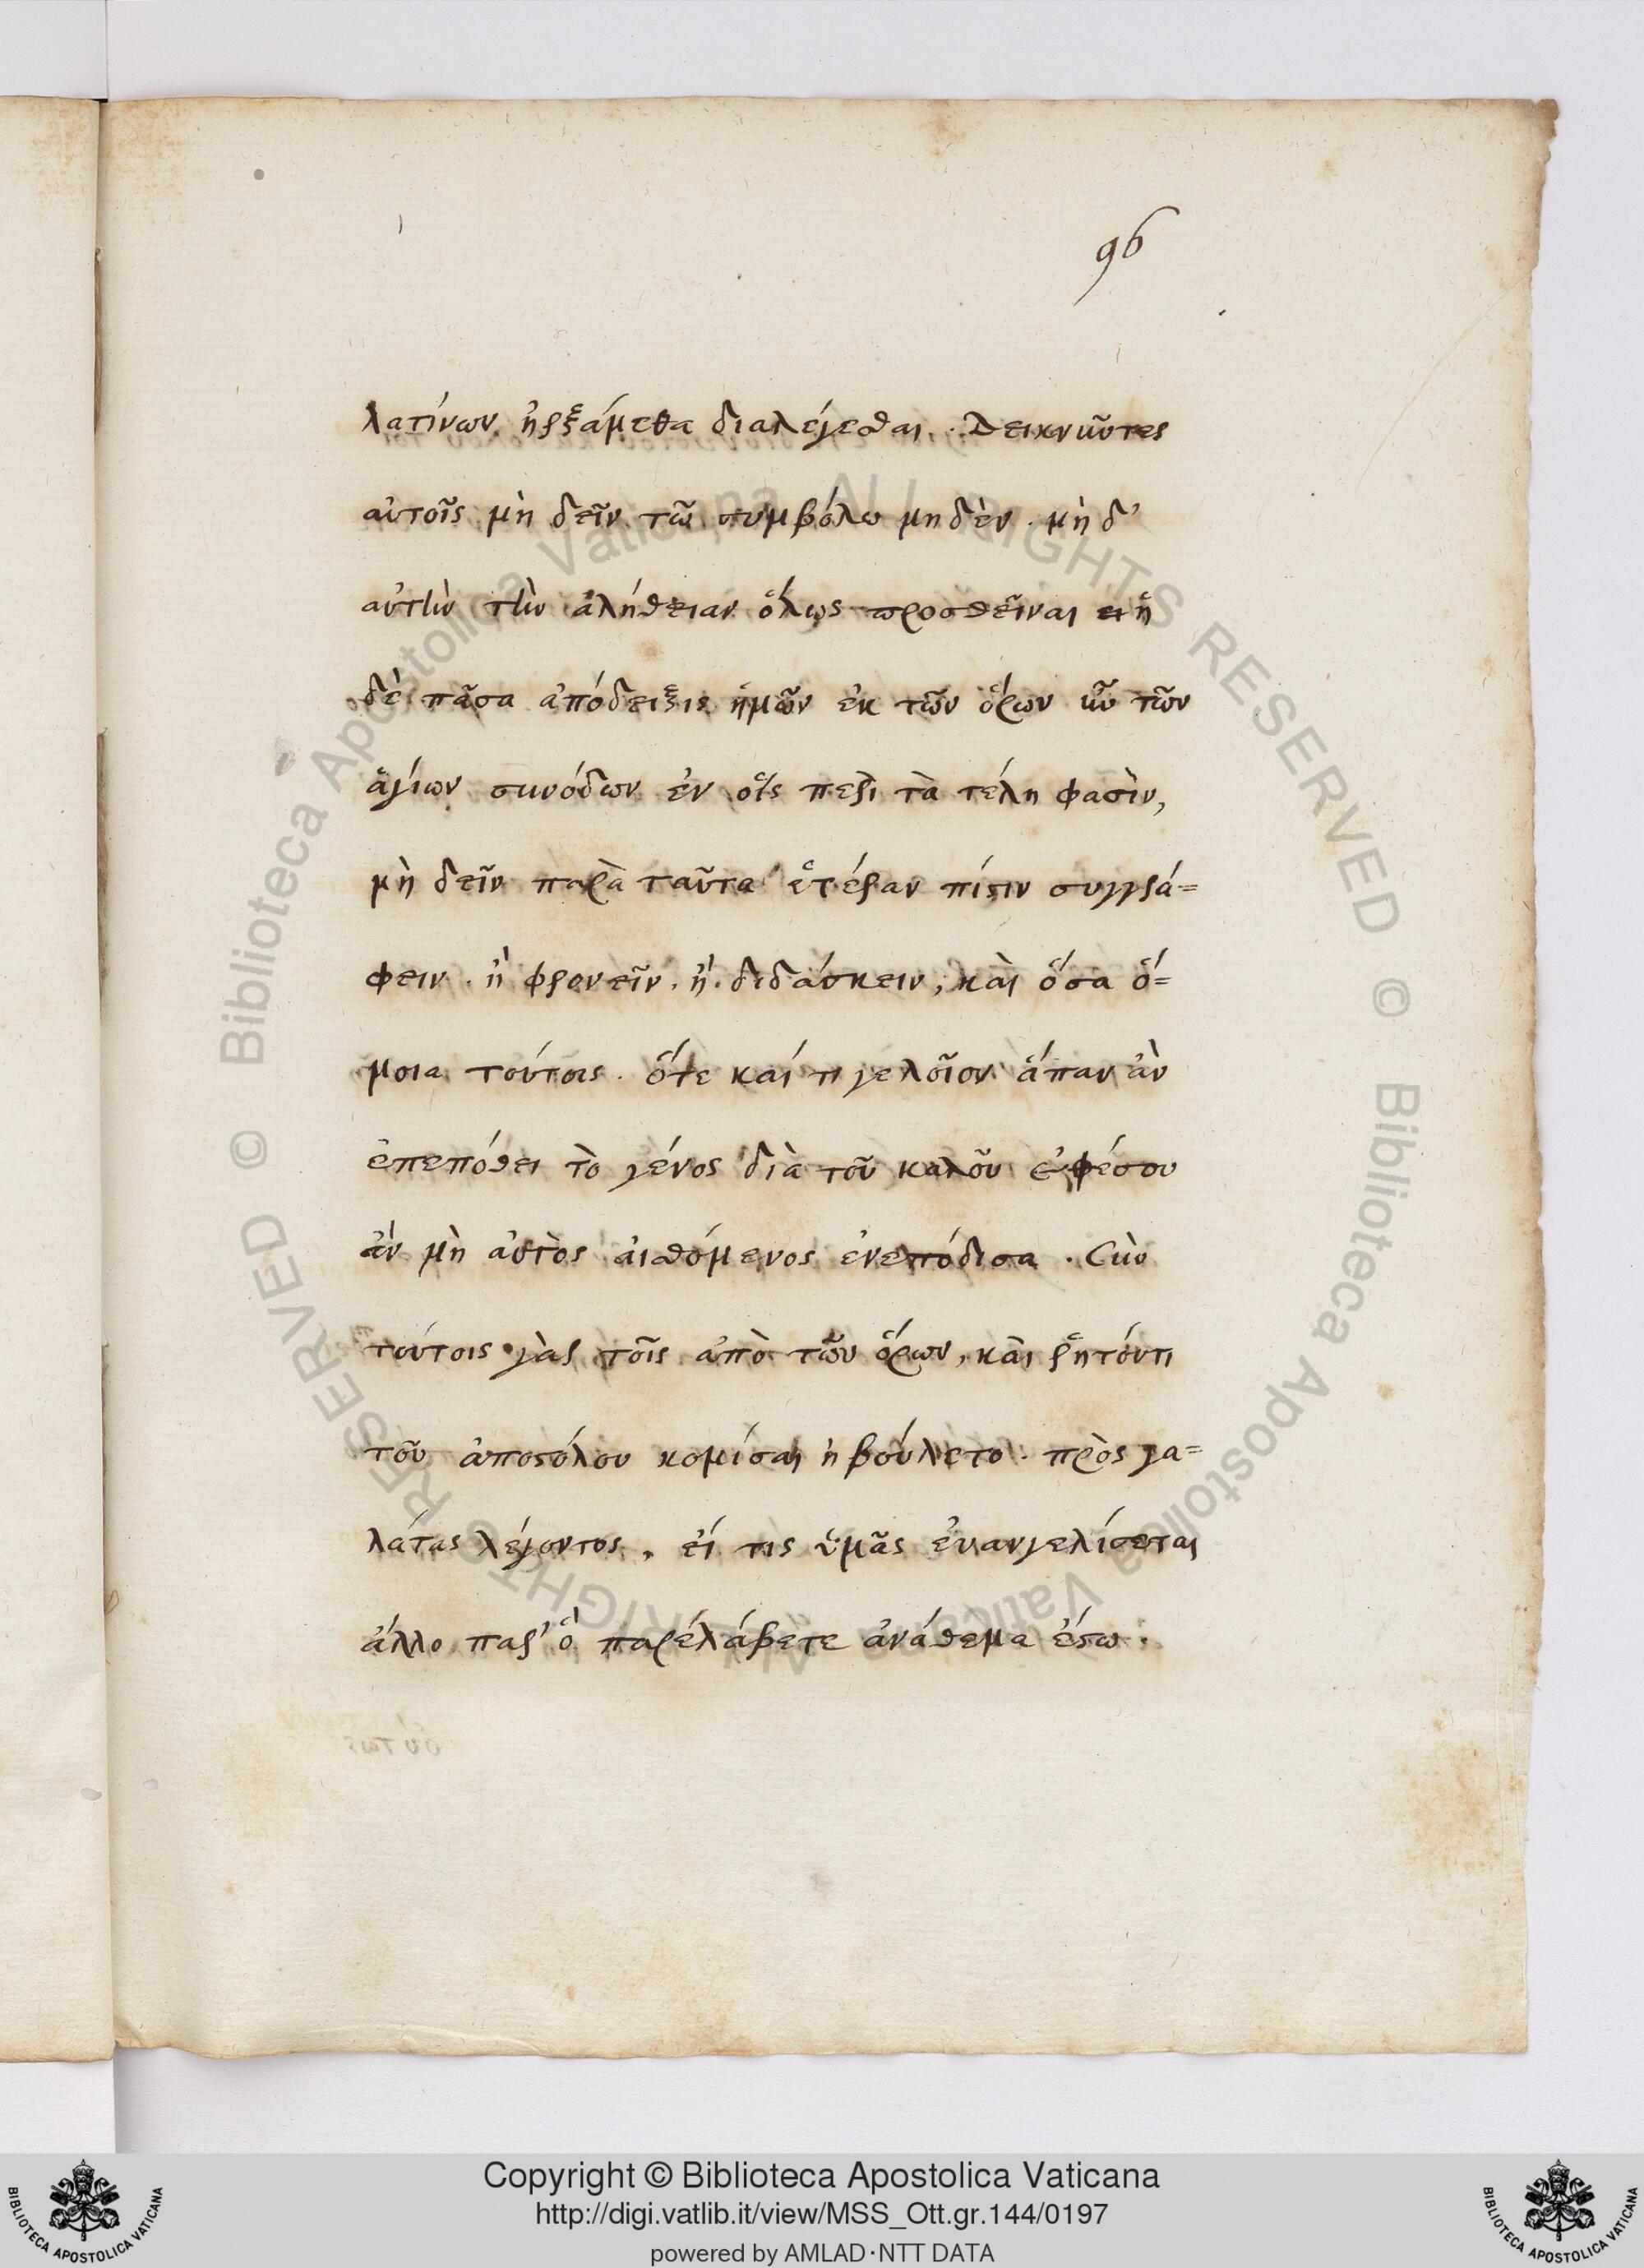 96
λατίνων ἠρξάμεθα διαλέγεσθαι. Δεικνῦντες
αὐτοῖς μὴ δεῖν τῶ συμβόλω μηδὲν. μὴ δ'
αὐτὴν τὴν ἀλήθειαν ὅλως προσθεῖναι ει ἡ
δέ πᾶσα ἀπόδειξις ἡμῶν ἐκ τῶν ὅρων ἦν τῶν
ἁγίων συνόδων ἐν οἷς περὶ τὰ τέλη φασὶν,
μὴ δεῖν παρὰ ταῦτα ἑτέραν πίστιν συγγρά=
φειν. ἢ φρονεῖν. ἢ. διδάσκειν, καὶ ὅσα ὅ=
μοια τούτοις. ὅτε καί τι γελοῖον ἅπαν ἂν
ἐπεπόθει τὸ γένος διὰ τοῦ καλοῦ ἐφέσου
ἄν μὴ αὐτὸς αἰσθόμενος ἐνεπόδισα. Σὺν
τούτοις γὰρ τοῖς ἀπὸ τῶν ὅρων, καὶ ῥητόντι
τοῦ ἀποστόλου κομίσαι ἠβούλετο. πρὸς γα=
λάτας λέγοντος, εἴ τις ὑμᾶς ἐυανγελίσεται
άλλο παρ' ὃ παρέλάβετε ἀνάθεμα ἔστω.
Copyright © Biblioteca Apostolica Vaticana
http://digi.vatlib.it/view/MSS_Ott.gr.144/0197
powered by AMLAD·NTT DATA
BIBLIOTECA APOSTOLICA VATICANA
BIBLIOTECA APOSTOLICA VATICANA
© Biblioteca Apostolica Vaticana ALL RIGHTS RESERVED © Biblioteca Apostolica Vaticana ALL RIGHTS RESERVED